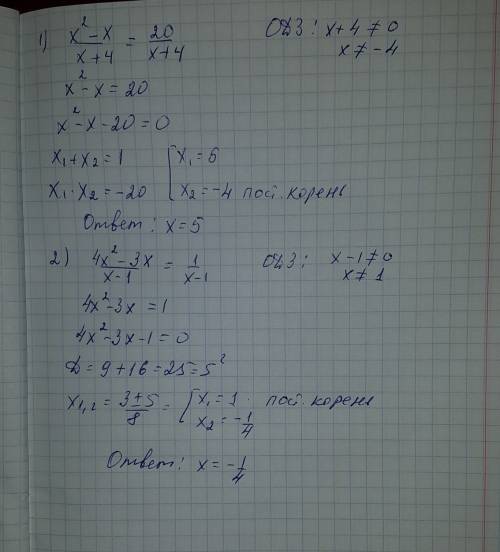 1) x² - x / x + 4 = 20 / x + 4 ОДЗ: x + 4 ≠ 0
x ≠ -4
x² - x = 20
x² - x - 20 = 0
x₁ + x₂ = 1 [ x₁ = 5
x₁ · x₂ = -20 [ x₂ = -4 пост. корень
Ответ: x = 5
2) 4x² - 3x / x - 1 = 1 / x - 1 ОДЗ: x - 1 ≠ 0
x ≠ 1
4x² - 3x = 1
4x² - 3x - 1 = 0
D = 9 + 16 = 25 = 5²
x₁,₂ = 3 ± 5 / 8 = [ x₁ = 1 пост. корень
x₂ = -1/4
Ответ: x = -1/4